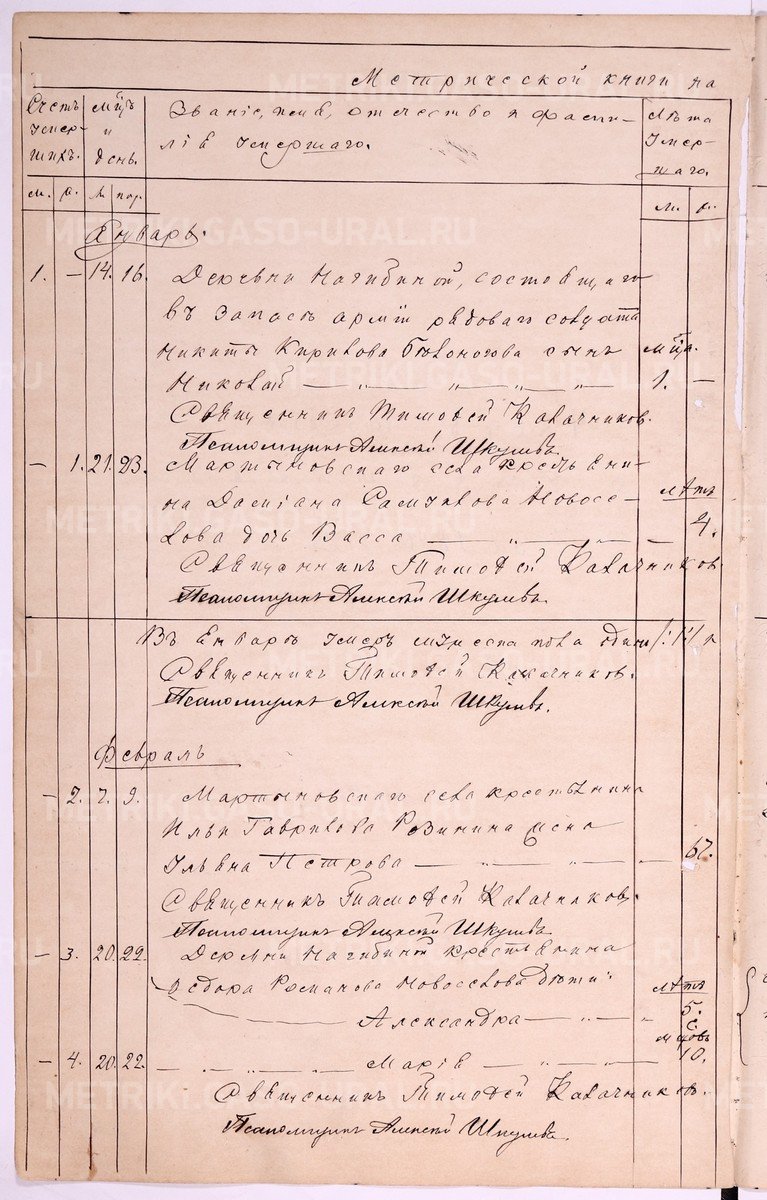 Метрической книги на
Счетъ умер-шихъ.
Мѣсяцъ и день.
Званіе, имя, отчество и фами-
лія умершаго.
Лѣта умер-
шаго.
м. ж. м. пог.
м. ж.
Январь.
1. — 14. 16. Деревни Нагибиной, состоящаго
въ запасѣ арміи рядоваго солдата
Никиты Кирилова Бѣлоногова сынъ
Николай — „ — „ — „ — 1. —
Священникъ Тимоѳей Калачниковъ.
Псаломщикъ Алексѣй Шкулевъ.
— 1. 21. 23. Мартыновскаго села крестьяни-
на Даміана Самуилова Новосе-
лова дочь Васса — „ — „ — 4.
лѣтъ
Священникъ Тимоѳей Калачниковъ.
Псаломщикъ Алексѣй Шкулевъ.
Въ Январѣ умеръ мужеска пола одинъ /:1:/ и
Священникъ Тимоѳей Калачниковъ.
Псаломщикъ Алексѣй Шкулевъ.
Февраль
— 2. 7. 9. Мартыновскаго села крестьянина
Ильи Гаврилова жена
Ульяна Петрова — „ — „ — 67.
Священникъ Тимоѳей Калачниковъ.
Псаломщикъ Алексѣй Шкулевъ.
— 3. 20. 22. Деревни Нагибиной крестьянина
Ѳедора Романова Новоселова дѣти:
лѣтъ
Александра — „ — „ 5.
— 4. 20. 22. — „ — „ — Марія — „ — „ — 10.
Священникъ Тимоѳей Калачниковъ.
Псаломщикъ Алексѣй Шкулевъ.
METRIKI.GASO-URAL.RU